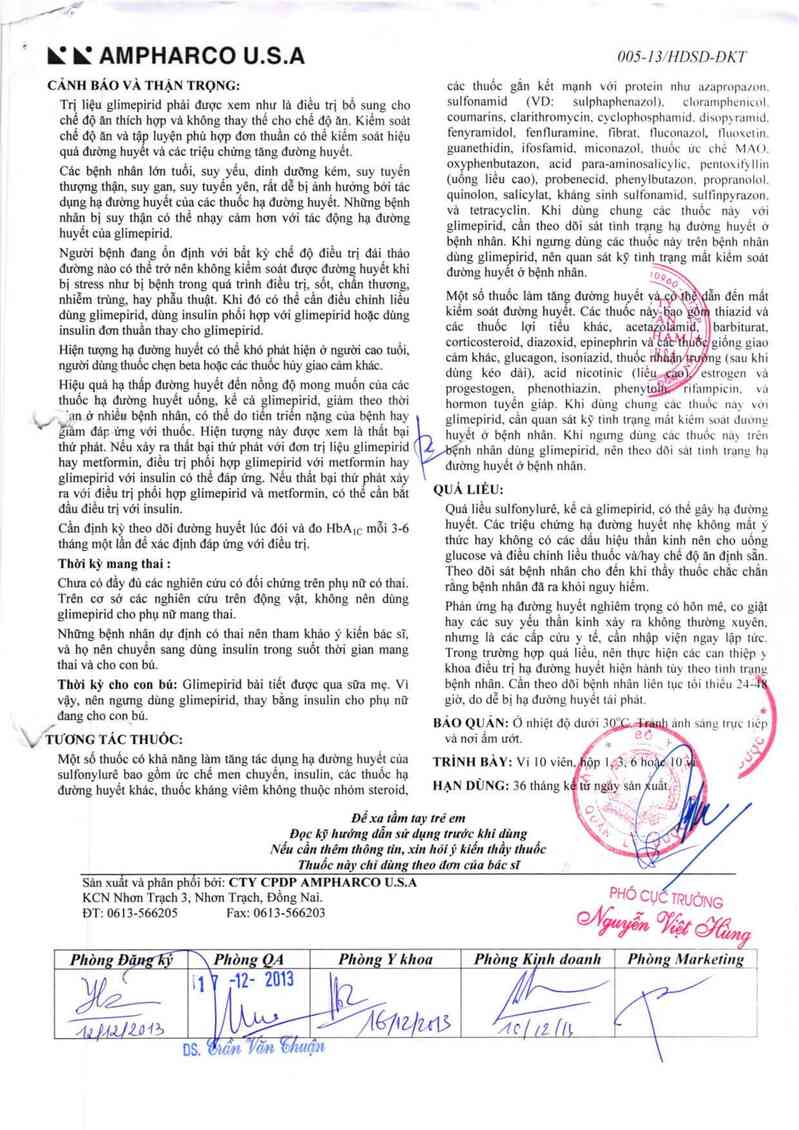 AMPHARCO U.S.A
005-13/HDSD-ĐKT
CẢNH BÁO VÀ THẬN TRỌNG:
Trị liệu glimepirid phải được xem như là điều trị bổ sung cho
chế độ ăn thích hợp và không thay thế cho chế độ ăn. Kiểm soát
chế độ ăn và tập luyện phù hợp đơn thuần có thể kiểm soát hiệu
quả đường huyết và các triệu chứng tăng đường huyết.
Các bệnh nhân lớn tuổi, suy yếu, dinh dưỡng kém, suy tuyến
thượng thận, suy gan, suy tuyến yên, rất dễ bị ảnh hưởng bởi tác
dụng hạ đường huyết của các thuốc hạ đường huyết. Những bệnh
nhân bị suy thận có thể nhạy cảm hơn với tác động hạ đường
huyết của glimepirid.
Người bệnh đang ổn định với bất kỳ chế độ điều trị đái tháo
đường nào có thể trở nên không kiểm soát được đường huyết khi
bị stress như bị bệnh trong quá trình điều trị, sốt, chấn thương,
nhiễm trùng, hay phẫu thuật. Khi đó có thể cần điều chỉnh liều
dùng glimepirid, dùng insulin phối hợp với glimepirid hoặc dùng
insulin đơn thuần thay cho glimepirid.
Hiện tượng hạ đường huyết có thể khó phát hiện ở người cao tuổi,
người dùng thuốc chẹn beta hoặc các thuốc hủy giao cảm khác.
Hiệu quả hạ thấp đường huyết đến nồng độ mong muốn của các
thuốc hạ đường huyết uống, kể cả glimepirid, giảm theo thời
gian ở nhiều bệnh nhân, có thể do tiến triển nặng của bệnh hay
giảm đáp ứng với thuốc. Hiện tượng này được xem là thất bại
thứ phát. Nếu xảy ra thất bại thứ phát với đơn trị liệu glimepirid
hay metformin, điều trị phối hợp glimepirid với metformin hay
glimepirid với insulin có thể đáp ứng. Nếu thất bại thứ phát xảy
ra với điều trị phối hợp glimepirid và metformin, có thể cần bắt
đầu điều trị với insulin.
Cần định kỳ theo dõi đường huyết lúc đói và đo HbA1C mỗi 3-6
tháng một lần để xác định đáp ứng với điều trị.
Thời kỳ mang thai :
Chưa có đầy đủ các nghiên cứu có đối chứng trên phụ nữ có thai.
Trên cơ sở các nghiên cứu trên động vật, không nên dùng
glimepirid cho phụ nữ mang thai.
Những bệnh nhân dự định có thai nên tham khảo ý kiến bác sĩ,
và họ nên chuyển sang dùng insulin trong suốt thời gian mang
thai và cho con bú.
Thời kỳ cho con bú: Glimepirid bài tiết được qua sữa mẹ. Vì
vậy, nên ngưng dùng glimepirid, thay bằng insulin cho phụ nữ
đang cho con bú.
TƯƠNG TÁC THUỐC:
Một số thuốc có khả năng làm tăng tác dụng hạ đường huyết của
sulfonylurê bao gồm ức chế men chuyển, insulin, các thuốc hạ
đường huyết khác, thuốc kháng viêm không thuộc nhóm steroid,
các thuốc gắn kết mạnh với protein như azapropazon,
sulfonamid (VD: sulphaphenazol), cloramphenicol,
coumarins, clarithromycin, cyclophosphamid, disopyramid,
fenyramidol, fenfluramine, fibrat, fluconazol, fluoxetin,
guanethidin, ifosfamid, miconazol, thuốc ức chế MAO,
oxyphenbutazon, acid para-aminosalicylic, pentoxifyllin
(uống liều cao), probenecid, phenylbutazon, propranolol,
quinolon, salicylat, kháng sinh sulfonamid, sulfinpyrazon,
và tetracyclin. Khi dùng chung các thuốc này với
glimepirid, cần theo dõi sát tình trạng hạ đường huyết ở
bệnh nhân. Khi ngưng dùng các thuốc này trên bệnh nhân
dùng glimepirid, nên quan sát kỹ tình trạng mất kiểm soát
đường huyết ở bệnh nhân.
Một số thuốc làm tăng đường huyết và có thể dẫn đến mất
kiểm soát đường huyết. Các thuốc này bao gồm thiazid và
các thuốc lợi tiểu khác, acetazolamid, barbiturat,
corticosteroid, diazoxid, epinephrin và các thuốc giống giao
cảm khác, glucagon, isoniazid, thuốc nhuận trường (sau khi
dùng kéo dài), acid nicotinic (liều cao), estrogen và
progestogen, phenothiazin, phenytoin, rifampicin, và
hormon tuyến giáp. Khi dùng chung các thuốc này với
glimepirid, cần quan sát kỹ tình trạng mất kiểm soát đường
huyết ở bệnh nhân. Khi ngưng dùng các thuốc này trên
bệnh nhân dùng glimepirid, nên theo dõi sát tình trạng hạ
đường huyết ở bệnh nhân.
QUÁ LIỀU:
Quá liều sulfonylurê, kể cả glimepirid, có thể gây hạ đường
huyết. Các triệu chứng hạ đường huyết nhẹ không mất ý
thức hay không có các dấu hiệu thần kinh nên cho uống
glucose và điều chỉnh liều thuốc và/hay chế độ ăn định sẵn.
Theo dõi sát bệnh nhân cho đến khi thầy thuốc chắc chắn
rằng bệnh nhân đã ra khỏi nguy hiểm.
Phản ứng hạ đường huyết nghiêm trọng có hôn mê, co giật
hay các suy yếu thần kinh xảy ra không thường xuyên,
nhưng là các cấp cứu y tế, cần nhập viện ngay lập tức.
Trong trường hợp quá liều, nên thực hiện các can thiệp y
khoa điều trị hạ đường huyết hiện hành tùy theo tình trạng
bệnh nhân. Cần theo dõi bệnh nhân liên tục tối thiểu 24-48
giờ, do dễ bị hạ đường huyết tái phát.
BẢO QUẢN: Ở nhiệt độ dưới 30°C. Tránh ánh sáng trực tiếp
và nơi ẩm ướt.
TRÌNH BÀY: Vỉ 10 viên, hộp 1, 3, 6 hoặc 10 vỉ.
HẠN DÙNG: 36 tháng kể từ ngày sản xuất.
Để xa tầm tay trẻ em
Đọc kỹ hướng dẫn sử dụng trước khi dùng
Nếu cần thêm thông tin, xin hỏi ý kiến thầy thuốc
Thuốc này chỉ dùng theo đơn của bác sĩ
Sản xuất và phân phối bởi: CTY CPDP AMPHARCO U.S.A
KCN Nhơn Trạch 3, Nhơn Trạch, Đồng Nai.
ĐT: 0613-566205 Fax: 0613-566203
PHÓ CỤC TRƯỞNG
Nguyễn Việt Hùng
Phòng Đăng ký Phòng QA Phòng Y khoa Phòng Kinh doanh Phòng Marketing
17 -12- 2013
12/12/2013 16/12/2013 10/12/13
DS. Trần Văn Thuận